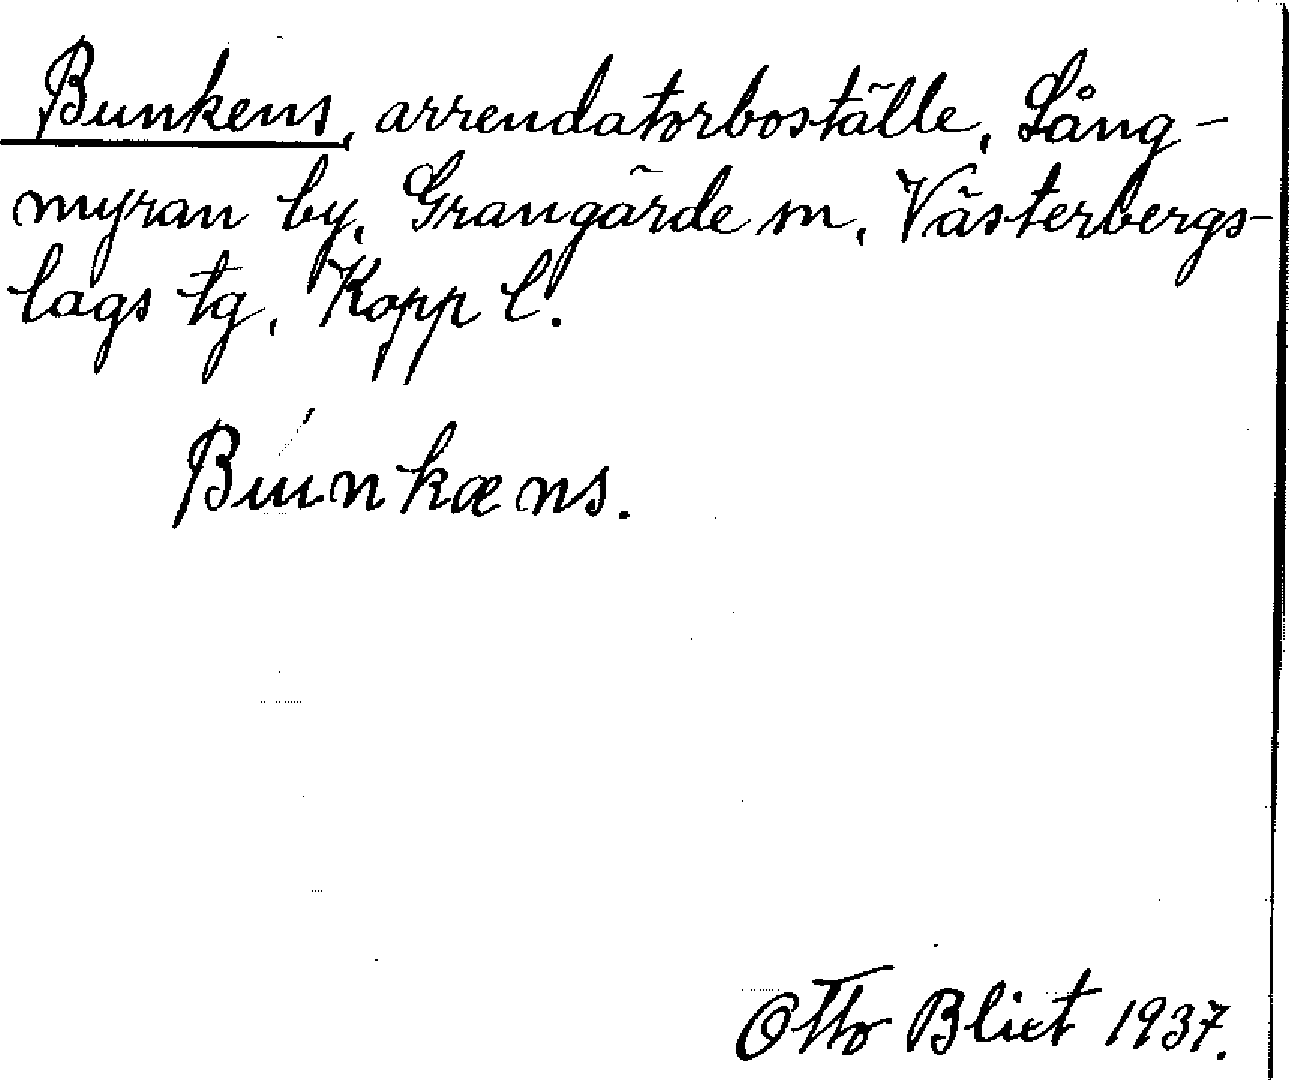 Bunkens, arrendatorboställe, Lång-
myran by, Grangärde sn, Västerbergs-
lags tg, Kopp l.
Búnkæns.
Otto Blixt 1937.